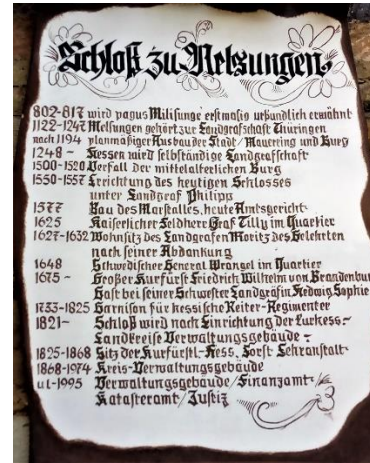 Schloß zu Melsungen
802-817 wird pagus Milisunge erstmalig urkundlich erwähnt
1122-1247 Melsungen gehört zur Landgrafschaft Thüringen
nach 1194 planmäßiger Ausbau der Stadt / Mauerring und Burg
1248 - Hessen wird selbständige Landgrafschaft
1500-1520 Verfall der mittelalterlichen Burg
1550-1557 Errichtung des heutigen Schlosses
unter Landgraf Philipp
1577 Bau des Marstalles, heute Amtsgericht
1625 Kaiserlicher Feldherr Graf Tilly im Quartier
1627-1632 Wohnsitz des Landgrafen Moritz des Gelehrten
nach seiner Abdankung
1648 Schwedischer General Wrangel im Quartier
1675 - Großer Kurfürst Friedrich Wilhelm von Brandenbu
Gast bei seiner Schwester Landgräfin Hedwig Sophie
1733-1825 Garnison für hessische Reiter-Regimenter
1821 - Schloß wird nach Einrichtung der Kurhess.-
Landkreise Verwaltungsgebäude -
1825-1868 Sitz der Kurfürstl.-Hess. Forst-Lehranstalt-
1868-1974 Kreis-Verwaltungsgebäude
-1995 Verwaltungsgebäude / Finanzamt /
Katasteramt / Justiz